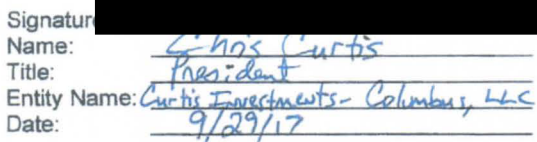 Signatur
Name: Chris Curtis
Title: President
Entity Name: Curtis Investments- Columbus, LLC
Date: 9/29/17